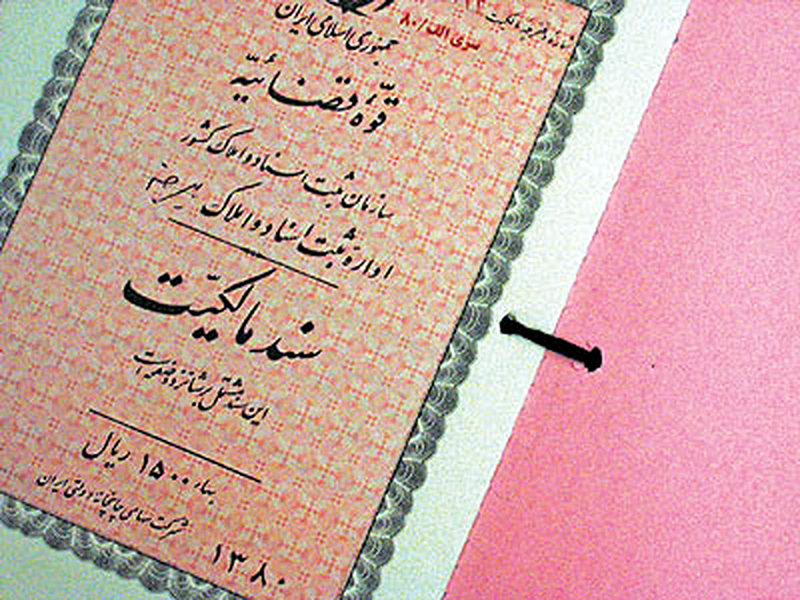 شماره دفترچه مالکیت
سری الف/۸۰
جمهوری اسلامی ایران
قوّهٔ قضائیّه
سازمان ثبت اسناد و املاک کشور
اداره ثبت اسناد و املاک بیرجند
سند مالکیّت
این سند مشتمل بر شانزده صفحه است
بهاء ۱۵۰۰ ریال
شرکت سهامی چاپخانه دولتی ایران
۱۳۸۰